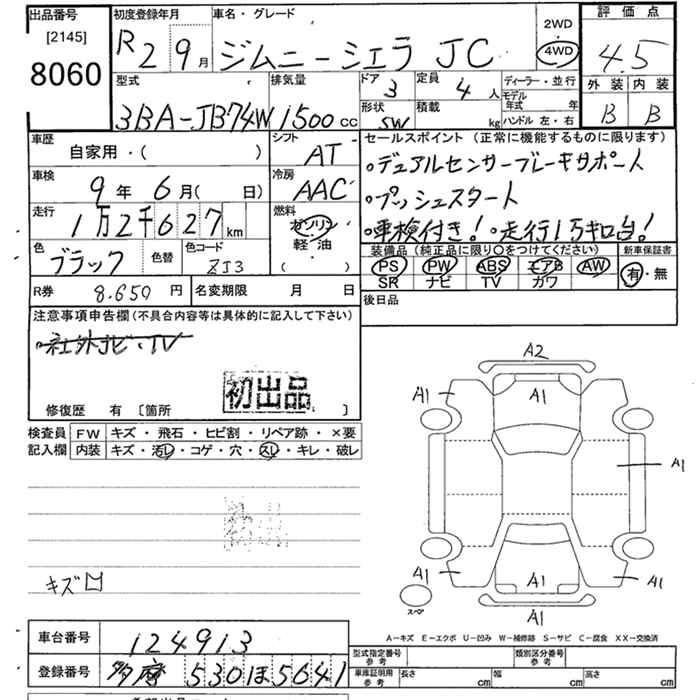 出品番号
[2145]
8060
初度登録年月
R2 9月
車名・グレード
ジムニーシエラ JC
2WD
4WD
評価点
4.5
外装 内装
B B
型式
3BA-JB74W
排気量
1500 cc
ドア 3
形状 SW
定員 4 人
積載 kg
ディーラー・並行
モデル年式 年
ハンドル 左・右
車歴
自家用・( )
車検
9年 6月( 日)
走行
1万2千627 km
色 ブラック
色替
色コード ZJ3
シフト AT
冷房 AAC
燃料
ガソリン
軽油
( )
セールスポイント (正常に機能するものに限ります)
・デュアルセンサーブレーキサポート
・プッシュスタート
・車検付き!・走行1万キロ台!
装備品 (純正品に限り○をつけてください)
PS PW ABS エアB AW
SR ナビ TV カワ
新車保証書
有・無
R券 8.650 円
名変期限 月 日
後日品
注意事項申告欄 (不具合内容等は具体的に記入して下さい)
・社外ナビ・TV
初出品
修復歴 有 [箇所 ]
検査員記入欄
FW キズ・飛石・ヒビ割・リペア跡・×要
内装 キズ・汚レ・コゲ・穴・スレ・キレ・破レ
キズ
A2
A1 A1 A1
A1
A1 A1 A1
A1
スペア
A-キズ E-エクボ U-凹み W-補修跡 S-サビ C-腐食 XX-交換済
車台番号 124913
登録番号 多摩 530 ほ 5641
型式指定番号 参考
類別区分番号 参考
車庫証明用 参考 長さ cm 幅 cm 高さ cm